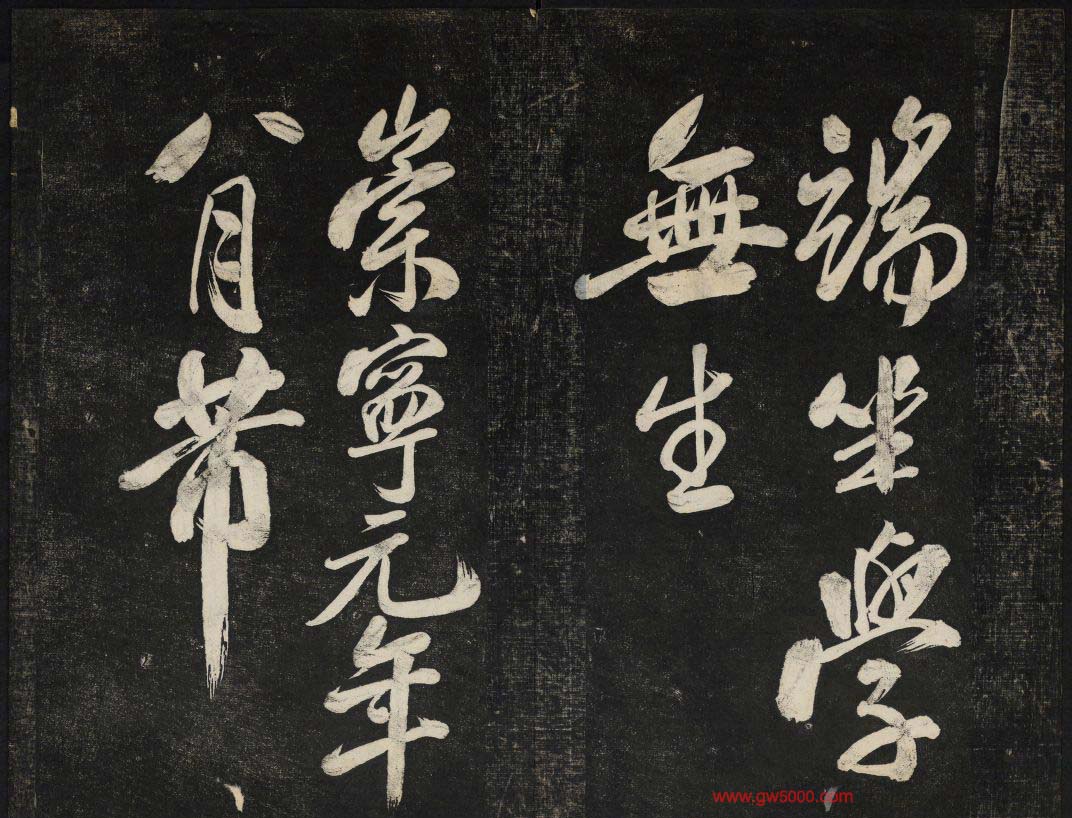 端坐學
無生
崇寧元年
八月芾
www.gw5000.com